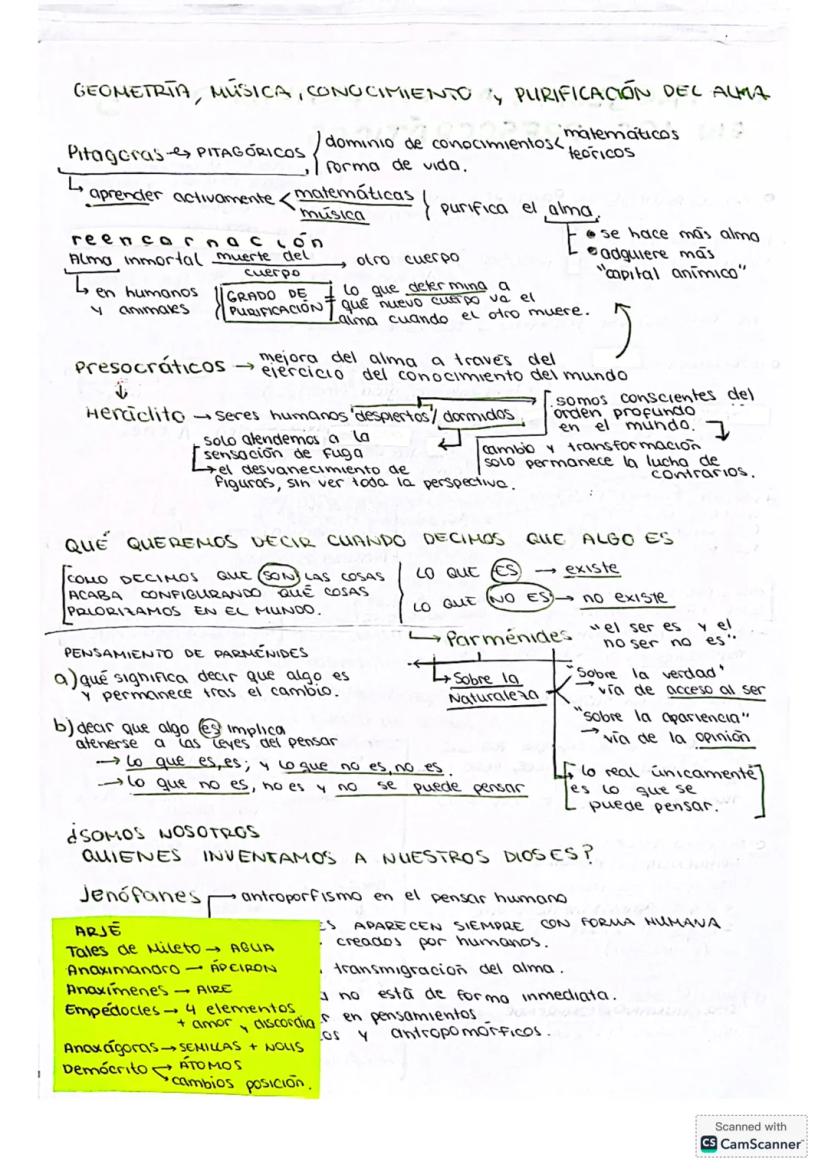 GEOMETRÍA, MÚSICA, CONOCIMIENTO y PURIFICACIÓN DEL ALMA
Pitagoras → PITAGÓRICOS
dominio de conocimientos < matemáticos
teóricos
forma de vida.
aprender activamente < matemáticas
música
purifica el alma.
se hace más alma
adquiere más
"capital anímico"
reencarnación
Alma inmortal muerte del cuerpo → otro cuerpo
en humanos
y animales
GRADO DE
PURIFICACIÓN
= lo que determina a
qué nuevo cuerpo va el
alma cuando el otro muere.
Presocráticos → mejora del alma a través del
ejercicio del conocimiento del mundo
Heráclito → seres humanos despiertos / dormidos
somos conscientes del
orden profundo
en el mundo.
solo atendemos a la
sensación de fuga
→ el desvanecimiento de
figuras, sin ver toda la perspectiva.
cambio y transformación
solo permanece la lucha de
contrarios.
QUÉ QUEREMOS DECIR CUANDO DECIMOS QUE ALGO ES
COMO DECIMOS QUE SON LAS COSAS
ACABA CONFIGURANDO QUÉ COSAS
PRIORIZAMOS EN EL MUNDO.
LO QUE ES → existe
LO QUE NO ES → no existe
Parménides "el ser es y el
no ser no es".
PENSAMIENTO DE PARMÉNIDES
a) qué significa decir que algo es
y permanece tras el cambio.
Sobre la
Naturaleza
"Sobre la verdad"
→ vía de acceso al ser
"sobre la apariencia"
→ vía de la opinión
b) decir que algo es implica
atenerse a las leyes del pensar
→ lo que es, es; y lo que no es, no es.
→ lo que no es, no es y no se puede pensar
lo real únicamente
es lo que se
puede pensar.
¿SOMOS NOSOTROS
QUIENES INVENTAMOS A NUESTROS DIOSES?
Jenófanes → antroporfismo en el pensar humano
ES APARECEN SIEMPRE CON FORMA HUMANA
creados por humanos.
transmigración del alma.
no está de forma inmediata.
r en pensamientos
os y antropomórficos.
ARJÉ
Tales de Mileto → AGUA
Anaximandro → ÁPEIRON
Anaxímenes → AIRE
Empédocles → 4 elementos
+ amor y discordia
Anaxágoras → SEMILLAS + NOUS
Demócrito → ÁTOMOS
cambios posición.
Scanned with
CS CamScanner